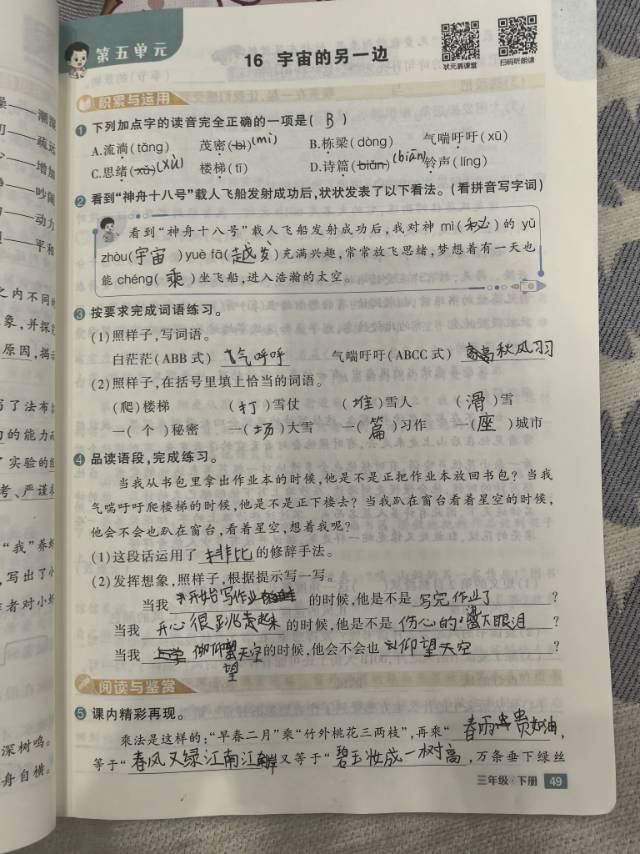 第五单元
16 宇宙的另一边
状元新课堂
扫码听朗读
积累与运用
1 下列加点字的读音完全正确的一项是( B )
A.流淌(tǎng) 茂密(mì) B.栋梁(dòng) 气喘吁吁(xū)
C.思绪(xù)(xù) 楼梯(tī) D.诗篇(biān)(biān)铃声(líng)
2 看到“神舟十八号”载人飞船发射成功后,状状发表了以下看法。(看拼音写字词)
看到“神舟十八号”载人飞船发射成功后,我对神 mì(秘)的 yǔ
zhòu(宇宙)yuè fā(越发)充满兴趣,常常放飞思绪,梦想着有一天也
能 chéng(乘)坐飞船,进入浩瀚的太空。
3 按要求完成词语练习。
(1)照样子,写词语。
白茫茫(ABB 式) 气呼呼 气喘吁吁(ABCC 式) 秋风习习
(2)照样子,在括号里填上恰当的词语。
(爬)楼梯 (打)雪仗 (堆)雪人 (滑)雪
一(个)秘密 一(场)大雪 一(篇)习作 一(座)城市
4 品读语段,完成练习。
当我从书包里拿出作业本的时候,他是不是正把作业本放回书包?当我
气喘吁吁爬楼梯的时候,他是不是正下楼去?当我趴在窗台看着星空的时候,
他会不会也趴在窗台,看着星空,想着我呢?
(1)这段话运用了 排比 的修辞手法。
(2)发挥想象,照样子,根据提示写一写。
当我 开始写作业 的时候,他是不是 写完作业了 ?
当我 开心很跳起来 的时候,他是不是 伤心的 大眼泪 ?
当我 仰望天空的时候,他会不会也 仰望天空 ?
望
阅读与鉴赏
5 课内精彩再现。
乘法是这样的:“早春二月”乘“竹外桃花三两枝”,再乘“ 春雨贵如油,
等于“ 春风又绿江南岸 又等于“ 碧玉妆成一树高 ,万条垂下绿丝
三年级·下册 49
之内不同
象,并探
原因,揭
写了法布
的能力
实验的
考、严谨
“我”养
写出了小
者对小
深树鸣。
舟自横。